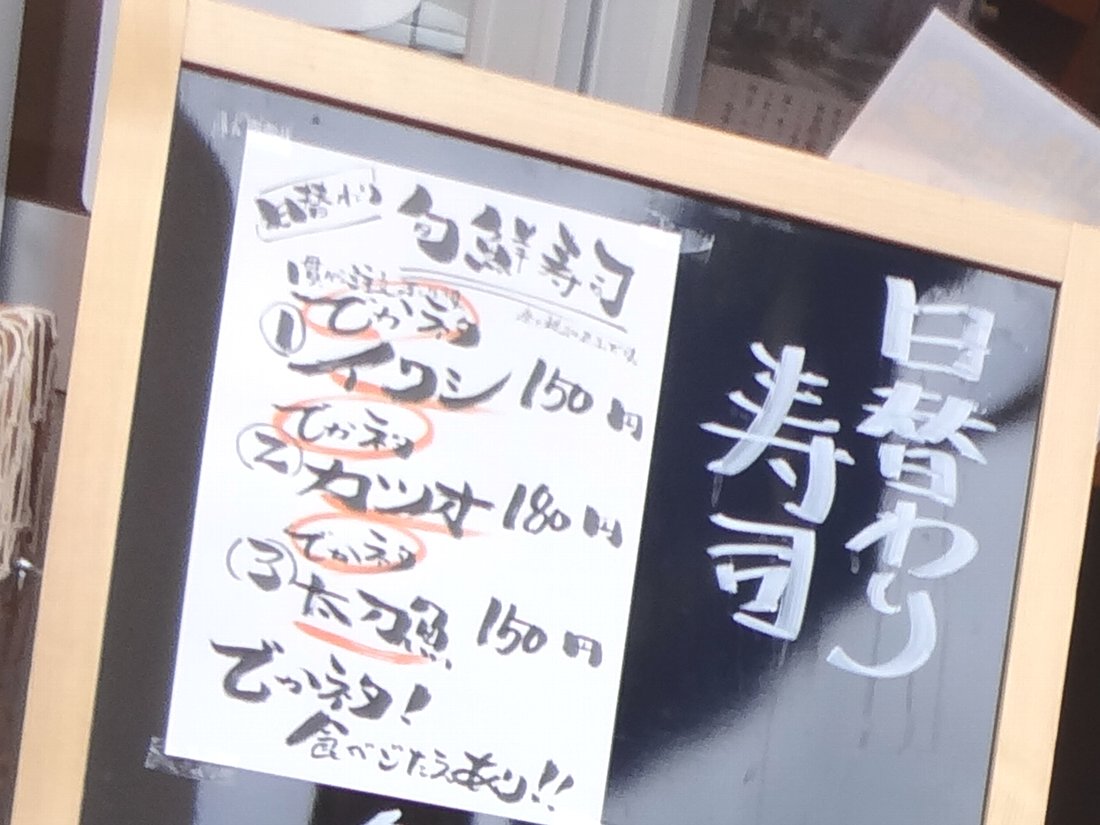 日替り
旬鮮寿司
でかネタ
① イワシ 150円
でかネタ
② カツオ 180円
でかネタ
③ 太刀魚 150円
でかネタ!
食べごたえあり!!
日替わり
寿司